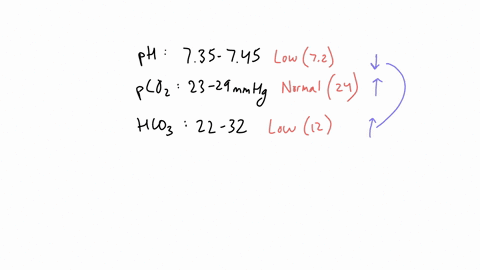 pH : 7.35-7.45 Low (7.2) ↓
pCO₂ : 23-29 mmHg Normal (24) ↑
HCO₃ : 22-32 Low (12) ↑